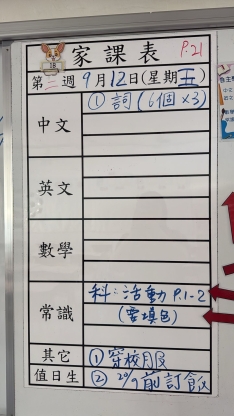 家課表 P.21
18
第三週9月12日(星期五)
中文 ① 詞(6個×3)
英文
數學
常識 科：活動P.1-2
(要填色)
其它 ①穿校服
值日生 ② 29/9前訂飯